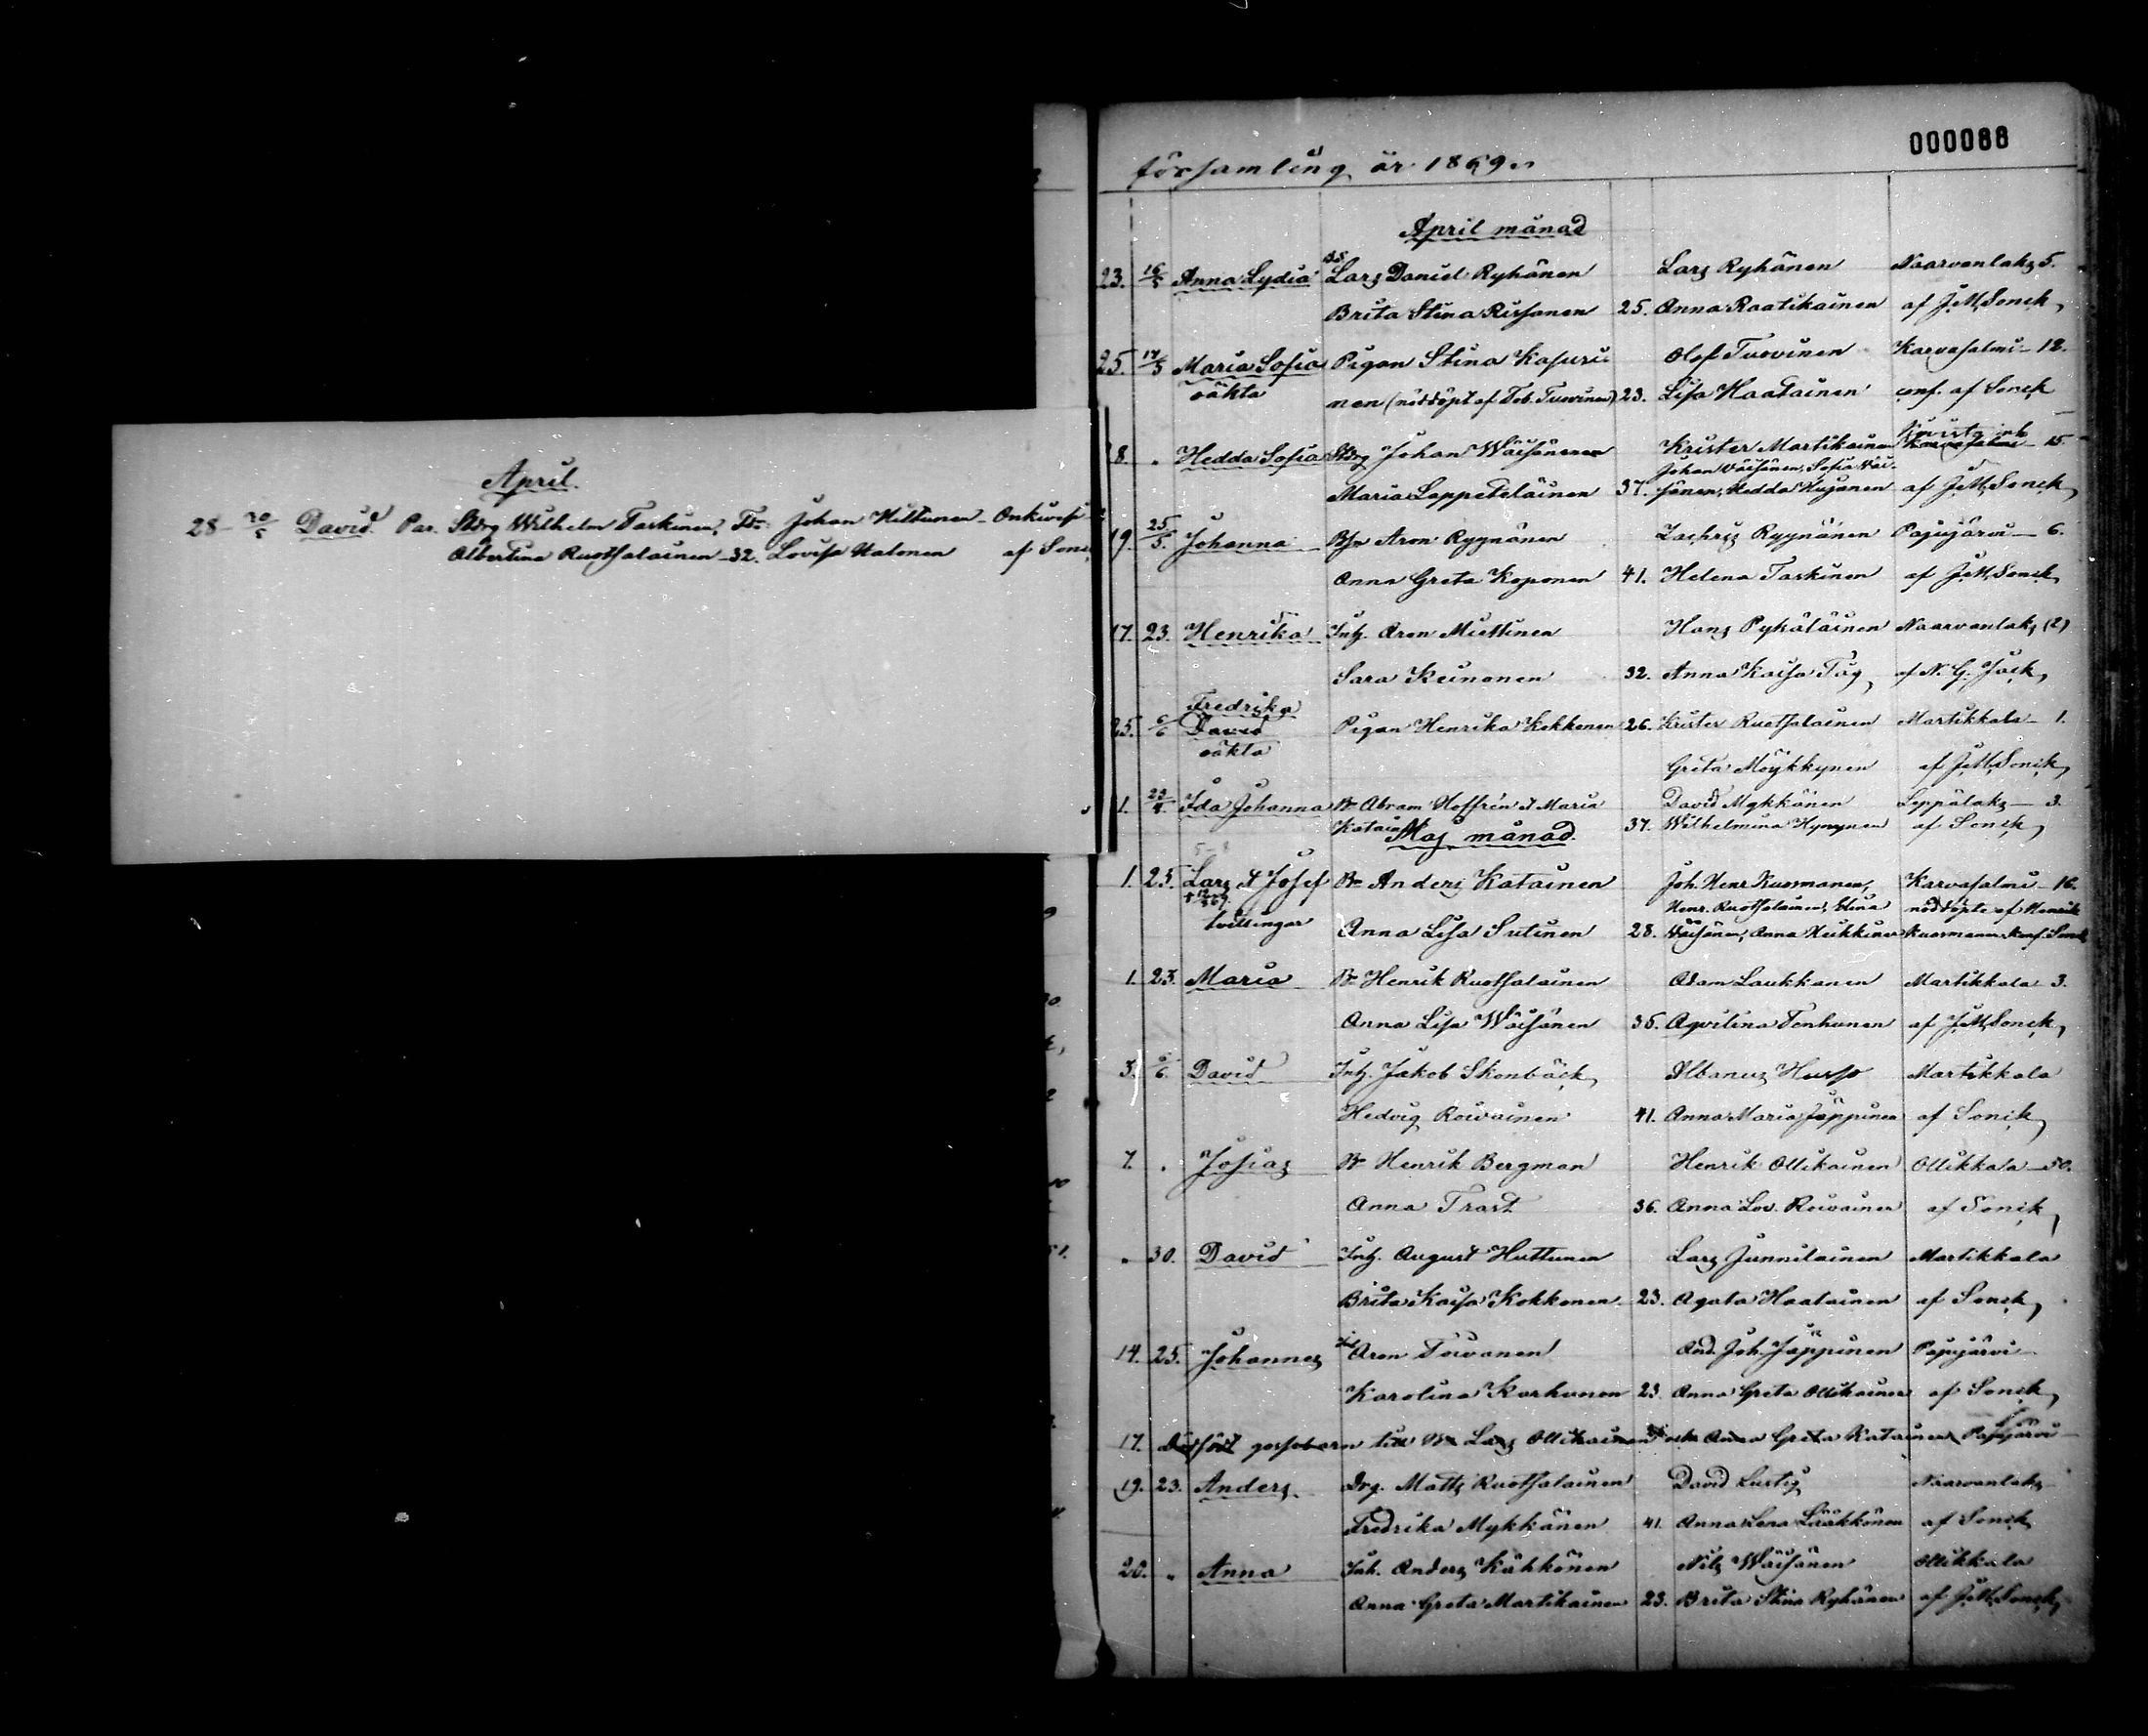 April.
28 20/5 David. Par. Stdrg Wilhelm Tarkinen, Fdr: Johan Hiltunen - Onkivesi
Albertina Ruotsalainen - 32. Lovisa Halonen af Sonck
000088
församling år 1869.
April månad
23. 16/5 Anna Lydia Bs Lars Daniel Ryhänen Lars Ryhänen Naarvanlaks 5.
Brita Stina Rissanen 25. Anna Raatikainen af J.M. Sonck,
25. 17/5 Maria Sofia Pigan Stina Kasuri- Olof Turvinen Karvasalmi - 12.
oäkta nen (nöddöpt af Tob. Turvinen) 23. Lisa Haatainen conf. af Sonck
8. " Hedda Sofia Stdrg Johan Wäisänen Krister Martikainen 15.
Johan Väisänen, Sofia Väi-
Maria Leppeteläinen 37. sänen, Hedda Husanen af J.M. Sonck,
19. 25/5. Johanna Aron Ryynänen Zachris Ryynänen Papujärvi - 6.
Anna Greta Koponen 41. Helena Tarkinen af J.M. Sonck,
17. 23. Henrika Inh. Aron Miettinen Hans Pykäläinen Naarvanlaks (2)
Sara Keinonen 32. Anna Kaisa af N. G. Jack,
Fredrika
25. 6/6 David Pigan Henrika Kekkonen 26. Krister Ruotsalainen Martikkala - 1.
oäkta
Greta Möykkynen af J.M. Sonck,
1. Ida Johanna Br Abram Hoffrén & Maria David Mykkänen Leppälaks - 3.
Katain 37. Wilhelmina Hynynen af Sonck,
Maj månad.
1. 25. Lars & Josef Br Anders Katainen Joh. Henr Kuosmanen, Karvasalmi - 16.
Henr. Ruotsalainen, Stina nöddöpte af Henrik
tvillingar Anna Lisa Sutinen 28. Väisänen, Anna Heikkinen Kuosmanen, konf. Sonck
1. 23. Maria Br Henrik Ruotsalainen Adam Laukkanen Martikkala 3.
Anna Lisa Wäisänen 35. Aqvilina Tenhunen af J.M. Sonck,
3. 6/6. David Inh. Jakob Skonbäck, Albanus Husso Martikkala
Hedvig Roivainen 41. Anna Maria Jäppinen af Sonck,
7. " Josias Br Henrik Bergman Henrik Ollikainen Ollikkala - 50.
Anna Trast 36. Anna Lov. Roivainen af Sonck,
" 30. David Inh. August Huttunen Lars Junnilainen Martikkala
Brita Kaisa Kokkonen 23. Agata Haatainen af Sonck,
14. 25. Johannes Aron Toivanen And. Joh. Jäppinen Papujärvi
Karolina Karhunen 23. Anna Greta Ollikainen af Sonck,
17. Dödfödt gossebarn till Br Lars Ollikainen och Anna Greta Katainen, Papujärvi -
19. 23. Anders. Drg. Matts Ruotsalainen David Lustig Naarvanlaks
Fredrika Mykkänen 41. Anna Lena Lääkkönen af Sonck,
20. " Anna Inh. Anders Kähkönen Nils Wäisänen Ollikkala
Anna Greta Martikainen 23. Brita Stina Ryhänen af J.M. Sonck,